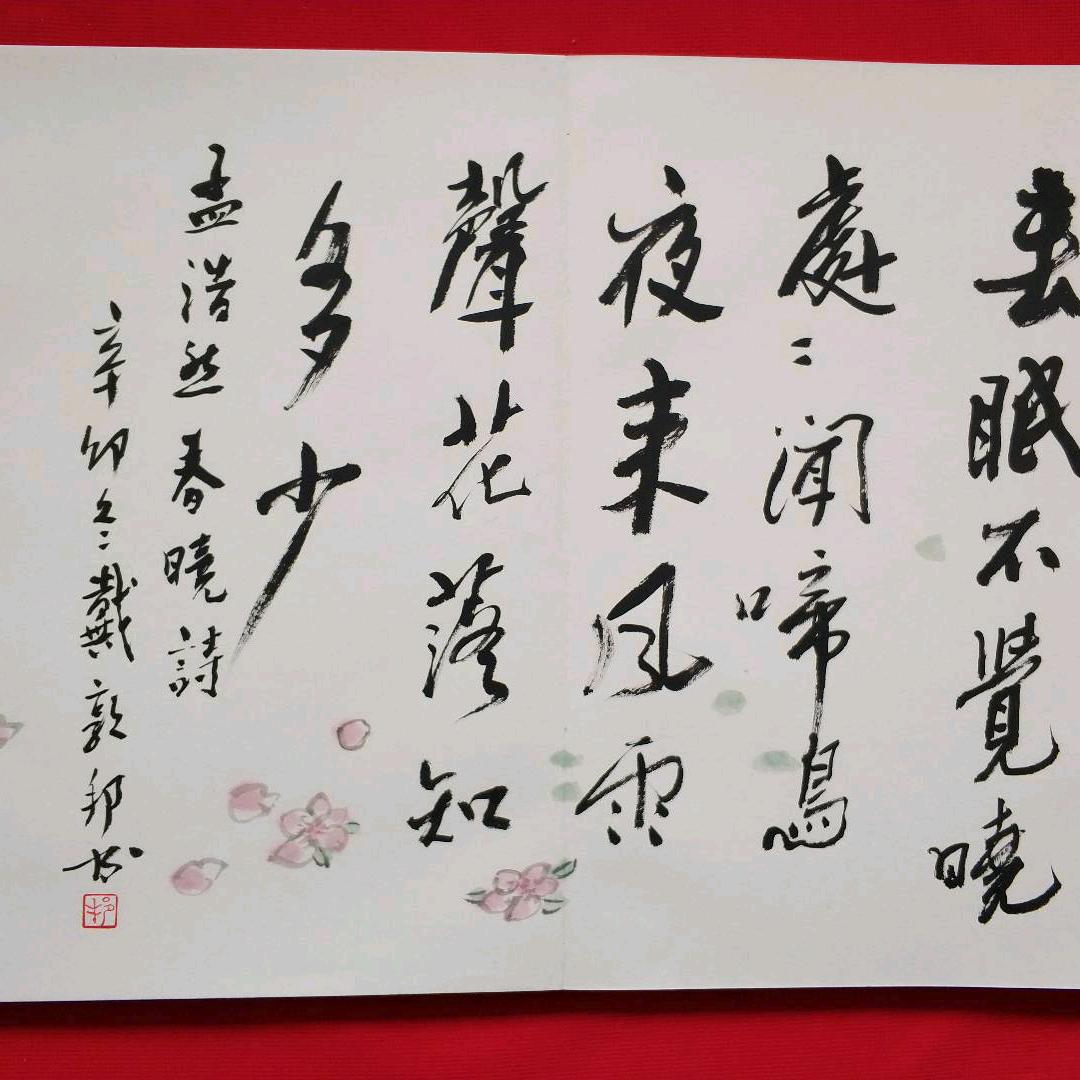 春眠不覺曉
處〻聞啼鳥
夜来風雨
聲花落知
多少
孟浩然春曉詩
辛卯冬戴敦邦书
邦